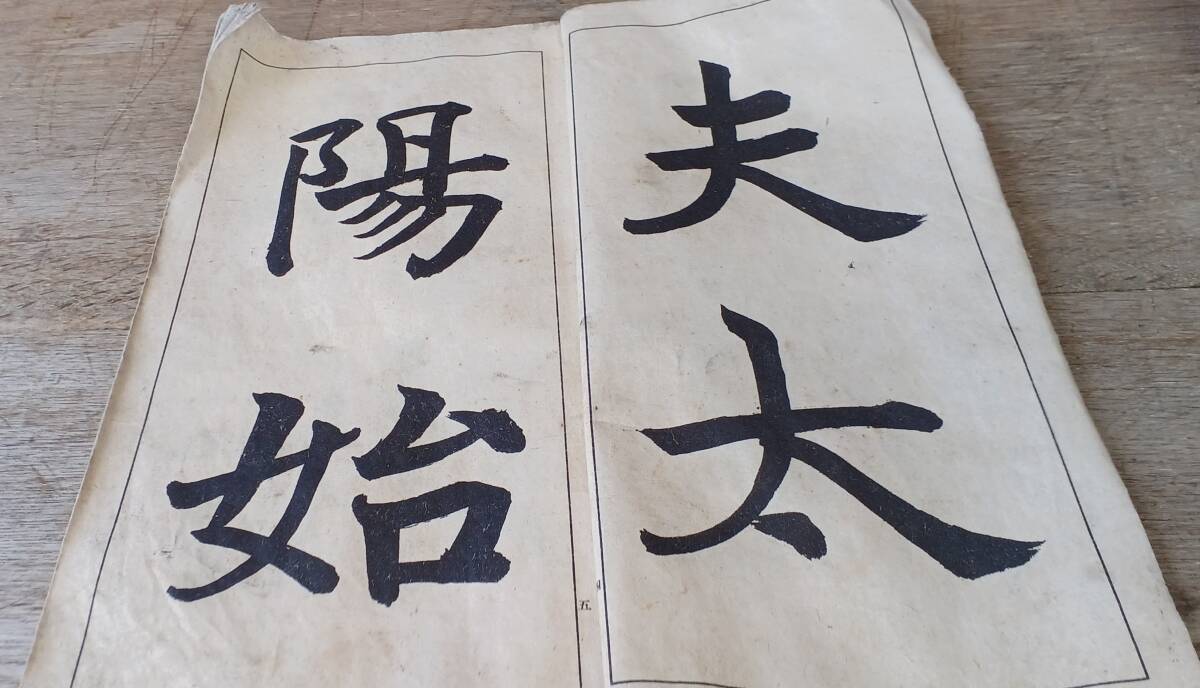 夫太
陽始
五